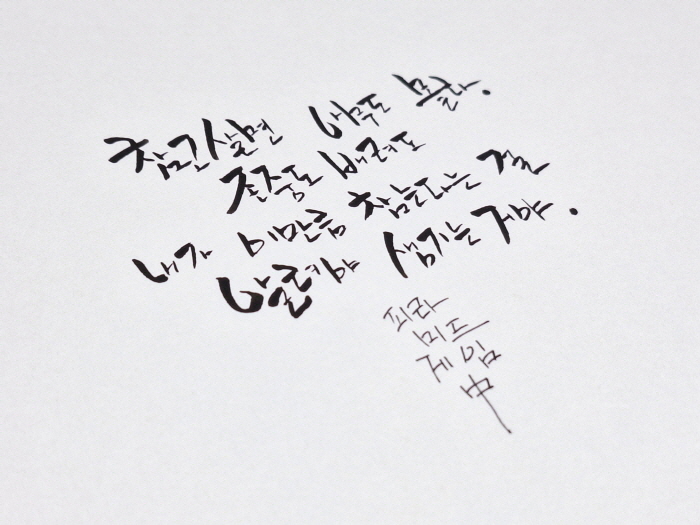 참고살면 아무도 몰라.
존중도 배려도
내가 이만큼 참는다는 걸
알려야 생기는거야.
피라
미드
게임
中